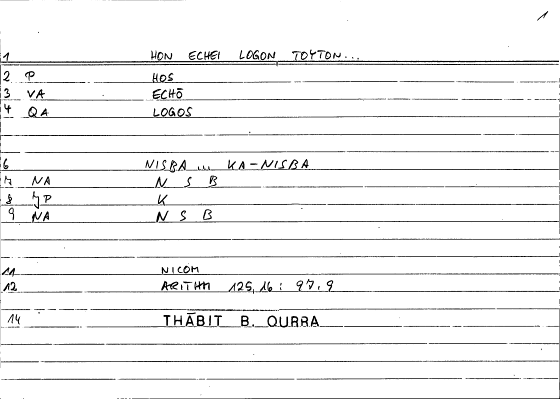 1
1 HON ECHEI LOGON TOYTON...
2 P HOS
3 VA ECHŌ
4 QA LOGOS
6 NISBA ... KA-NISBA
7 NA N S B
8 P K
9 NA N S B
11 NICOM
12 ARITHM 125,16 : 97,9
14 THĀBIT B. QURRA